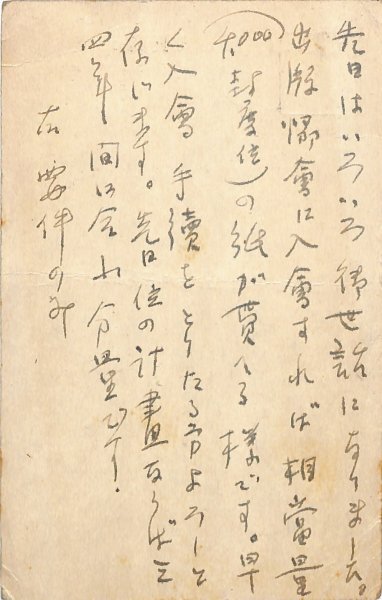 先日はいろいろ御世話になりました。
出版協會に入會すれば相當量
(4,000封度位)の紙が貰へる様です。早
く入會手續をとりたる方よろしと
存じます。先日位の計畫ならば三
四年間は合れ分量です。
右要件のみ